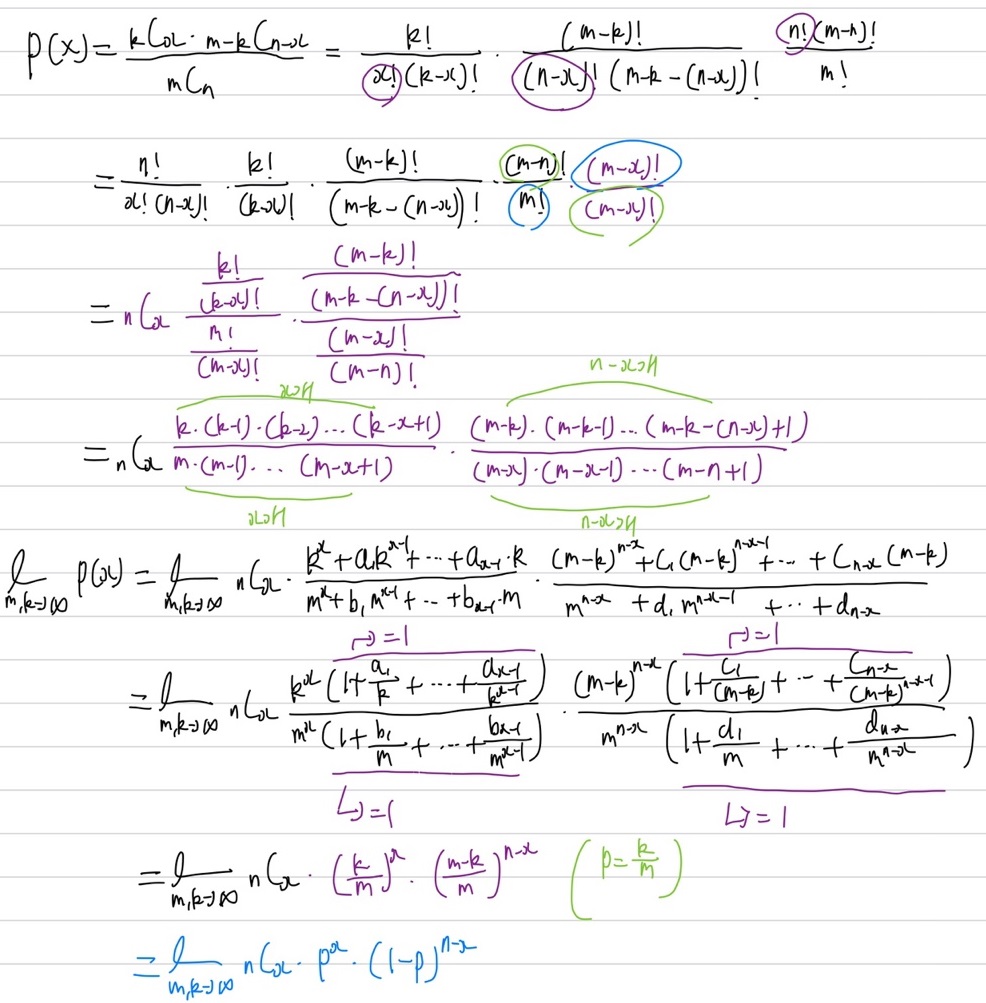 P(x) = kCx · m-kCn-x / mCn = k! / x!(k-x)! · (m-k)! / (n-x)!(m-k-(n-x))! n!(m-n)! / m!
= n! / x!(n-x)! · k! / (k-x)! · (m-k)! / (m-k-(n-x))! · (m-n)! / m! · (m-x)! / (m-x)!
= nCx (k! / (k-x)!) / (m! / (m-x)!) · ((m-k)! / (m-k-(n-x))!) / ((m-x)! / (m-n)!)
x개 n-x개
= nCx k·(k-1)·(k-2)...(k-x+1) / m·(m-1)·...(m-x+1) · (m-k)·(m-k-1)...(m-k-(n-x)+1) / (m-x)·(m-x-1)...(m-n+1)
x개 n-x개
lim m,k→∞ P(x) = lim m,k→∞ nCx · k^x + a₁k^(x-1) + ... + a_(x-1)·k / m^x + b₁m^(x-1) + ... + b_(x-1)·m · (m-k)^(n-x) + C₁(m-k)^(n-x-1) + ... + C_(n-x)(m-k) / m^(n-x) + d₁m^(n-x-1) + ... + d_(n-x)
→ = 1 → = 1
= lim m,k→∞ nCx k^x(1 + a₁/k + ... + a_(x-1)/k^(x-1)) / m^x(1 + b₁/m + ... + b_(x-1)/m^(x-1)) · (m-k)^(n-x)(1 + C₁/(m-k) + ... + C_(n-x)/(m-k)^(n-x-1)) / m^(n-x)(1 + d₁/m + ... + d_(n-x)/m^(n-x))
↳ = 1 ↳ = 1
= lim m,k→∞ nCx · (k/m)^x · (m-k/m)^(n-x) (p = k/m)
= lim m,k→∞ nCx · p^x · (1-p)^(n-x)